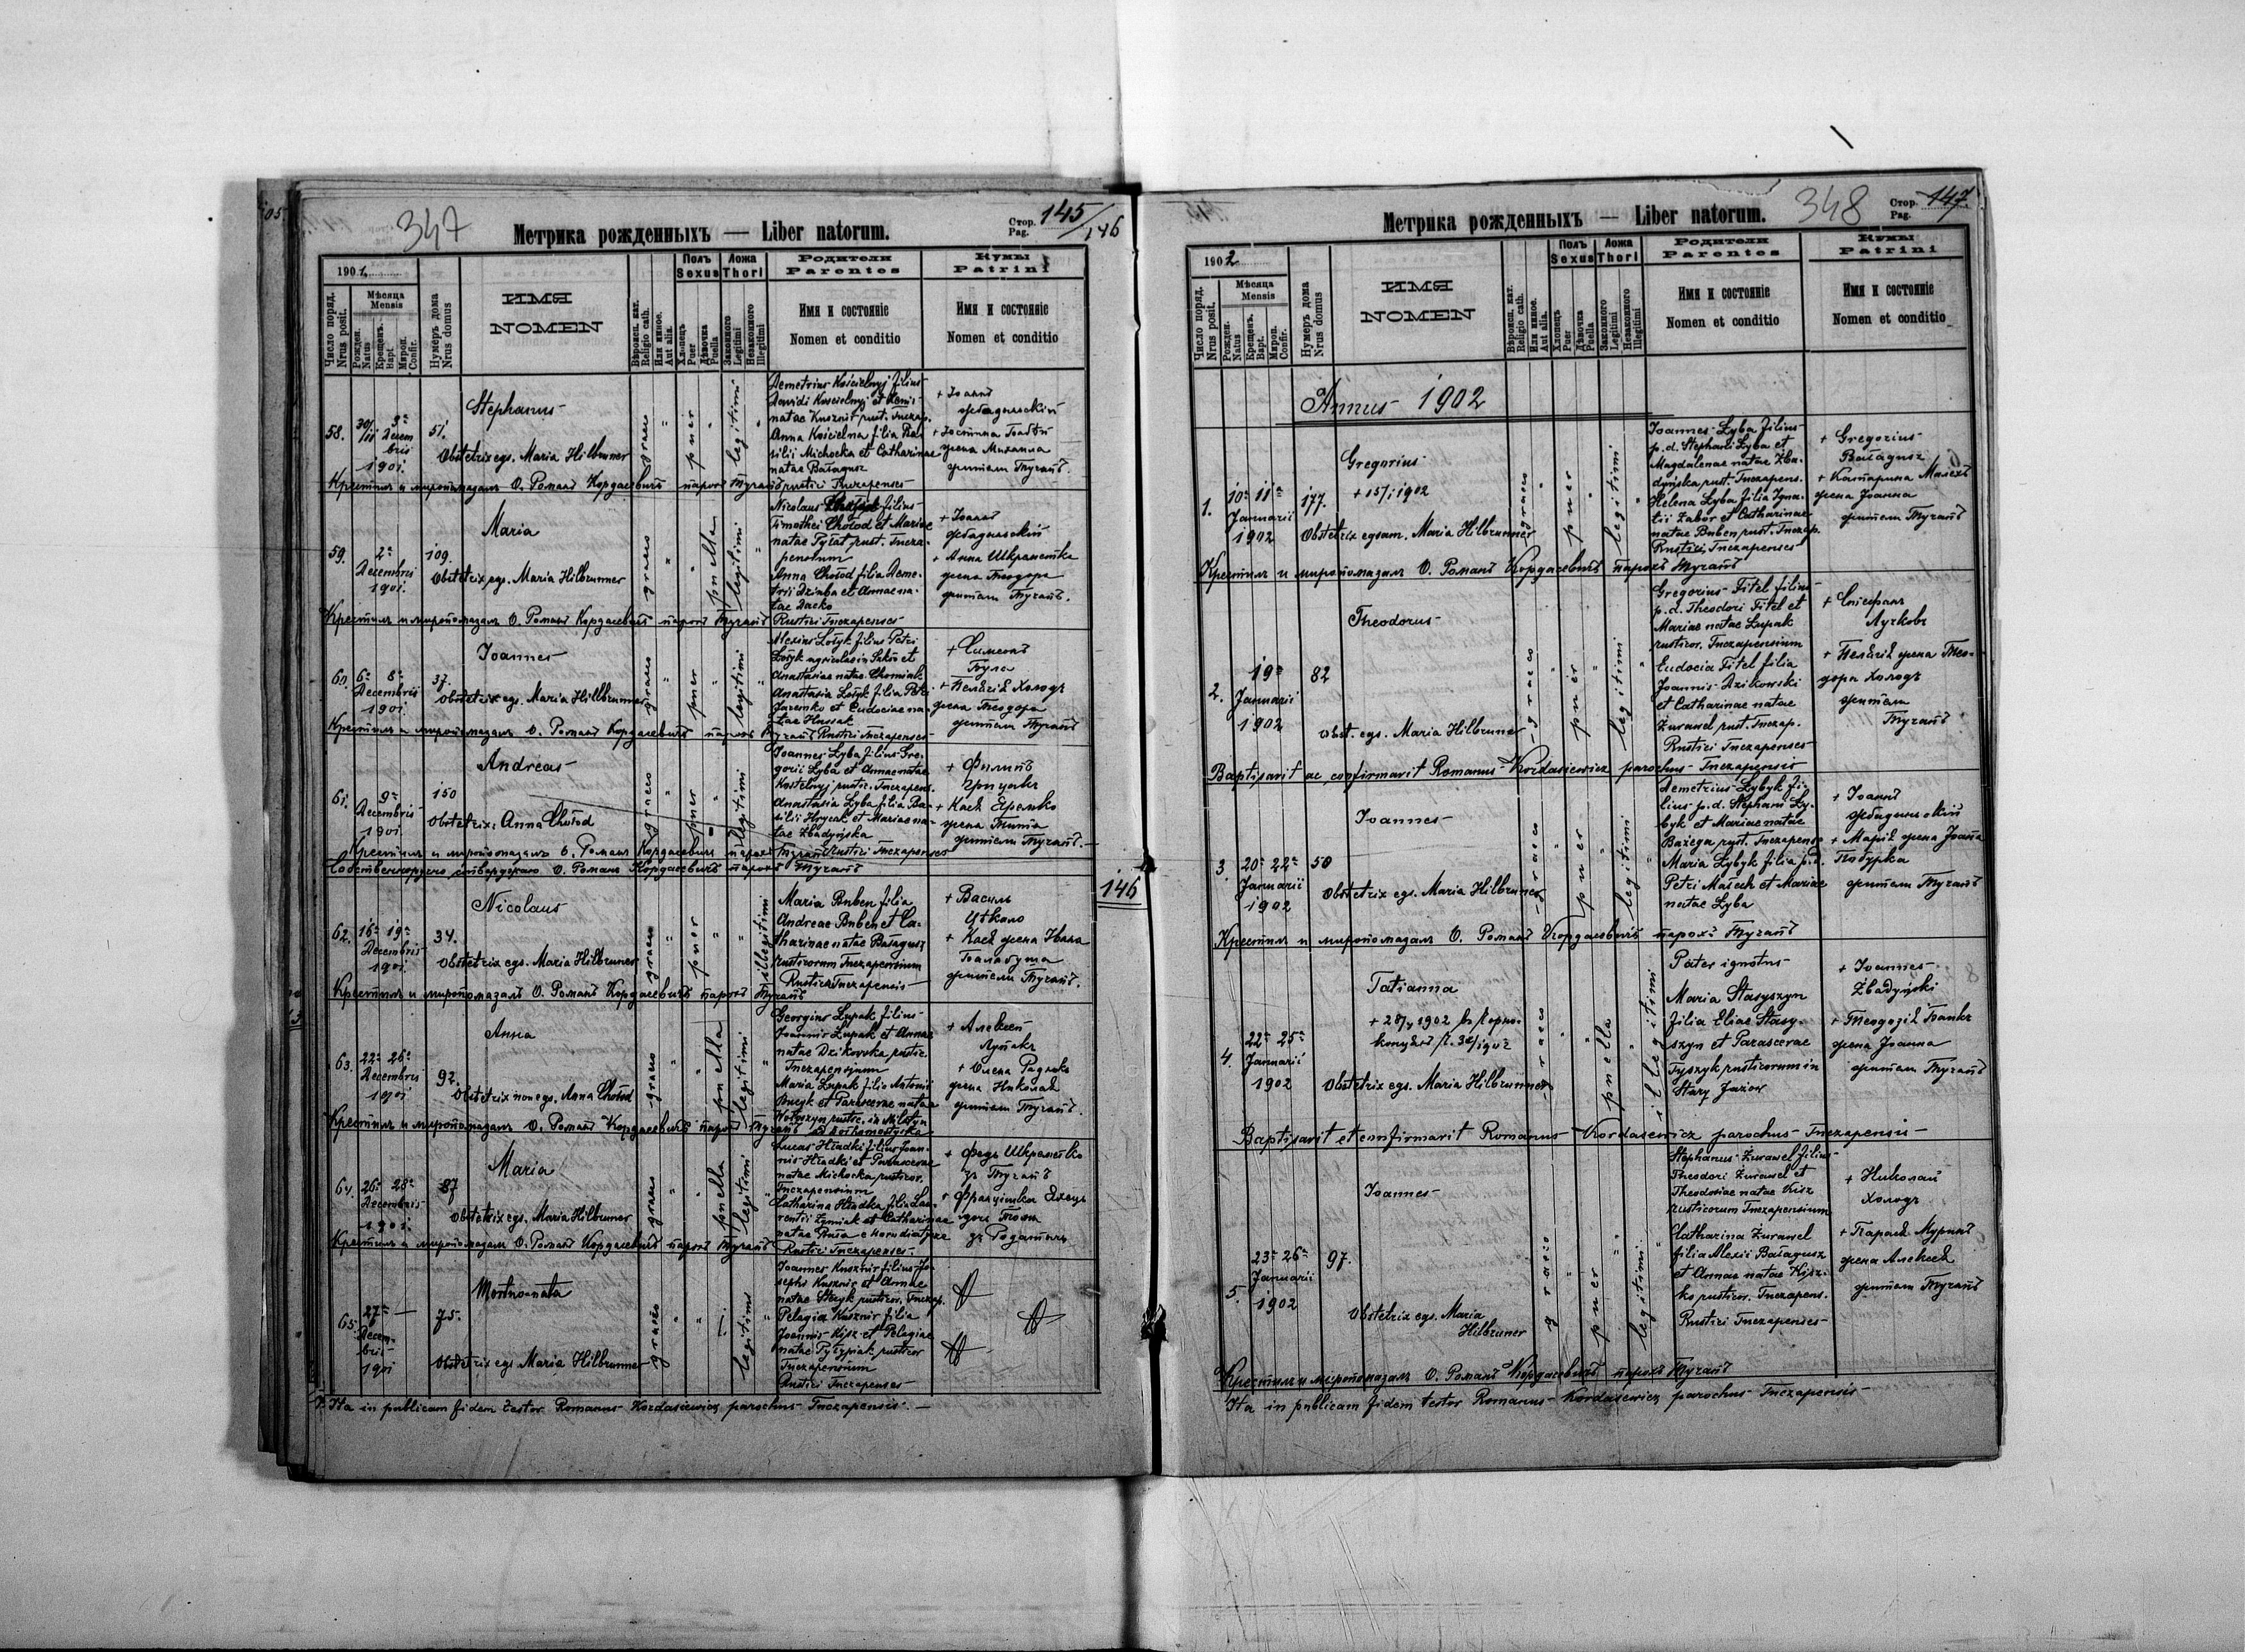 347
Метрика рожденныхъ — Liber natorum.
Стор. Pag. 145/146
1901
Число поряд. Nrus posit.
Мѣсяца Mensis
Рожден. Natus
Крещенъ. Bapt.
Мирoп. Confir.
Нумеръ дома Nrus domus
ИМЯ
NOMEN
Вѣроисп. кат. Religio cath.
Или иное. Aut alia.
Полъ Sexus
Хлопецъ Puer
Дѣвочка Puella
Ложа Thori
Законного Legitimi
Незаконного Illegitimi
Родители
Parentes
Имя и состоянiе
Nomen et conditio
Кумы
Patrini
Имя и состоянiе
Nomen et conditio
58. 30/11 9a Decembris 1901 51.
Stephanus
Obstetrix egs. Maria Hilbrunner
graeco " puer " legitimi "
Demetrius Kościelnyj filius
Davidi Kościelnyj et
natae Kusznir rust. Tuczap.
Anna Kościelna filia Ba-
silii Michocka et Catharinae
natae Bałagusz
rustici Tuczapenses
+ Іоаннъ
Жбадыньскій
жена Михаила
жители Тучапъ.
Крестилъ и миропомазалъ О. Романъ Кордасевичъ парохъ Тучапъ
59. 2a Decembris 1901. 109.
Maria
Obstetrix egs. Maria Hilbrunner
graeco " puella legitimi "
Nicolaus filius
Timothei Chołod et Mariae
natae Pyłat rust. Tucza-
pensium
Anna Chołod filia Deme-
trii Dziuba et Annae na-
tae Dacko
Rustici Tuczapenses
+ Іоаннъ
Жбадыньскій
+ Анна Шкраметка
жена Теодора
жители Тучапъ.
Крестилъ и миропомазалъ О. Романъ Кордасевичъ парохъ Тучапъ
60. 6a 8a Decembris 1901. 37.
Joannes
Obstetrix egs. Maria Hilbrunner
graeco " puer " legitimi "
Alexius Lotyk filius Petri
Lotyk agricolae in et
Anastasiae natae Chomiak
Anastasia Lotyk filia Petri
Jaremko et Eudociae na-
tae Hussak
Rustici Tuczapenses
+ Симеонъ
Була
+ Пелагія Холодъ
жена Теодора
жители Тучапъ
Крестилъ и миропомазалъ О. Романъ Кордасевичъ парохъ Тучапъ
61. 9a Decembris 1901. 150
Andreas
Obstetrix: Anna Chołod
graeco " puer " legitimi
Joannes Lyba filius Gre-
gorii Lyba et Annae natae
Kostelnyj rustic. Tuczapens.
Anastasia Lyba filia Ba-
silii Hrycak et Mariae na-
tae Zbadyńska
Rustici Tuczapenses
+ Филипъ
Грицакъ
+ Кася Яремко
жена Тита
жители Тучапъ.
Крестилъ и миропомазалъ О. Романъ Кордасевичъ парохъ Тучапъ
Собственноручно ствердждаю О. Романъ Кордасевичъ парохъ Тучапъ
146
62. 16a 19a Decembris 1901. 34.
Nicolaus
Obstetrix egs. Maria Hilbruner
graeco " puer " " illegitimi
Maria Buben filia
Andreae Buben et Ca-
tharinae natae Bałagusz
rusticorum Tuczapensium
Rustica Tuczapensis
+ Василь
Цѣкало
+ Кася жена Ивана
Балабуха
жители Тучапъ.
Крестилъ и миропомазалъ О. Романъ Кордасевичъ парохъ Тучапъ
63. 22a 26a Decembris 1901 92.
Anna
Obstetrix non egs. Anna Chołod
graeco " puella legitimi "
Georgius Lupak filius
Joannis Lupak et Annae
natae Dzikovska rustic.
Tuczapensium
Maria Lupak filia Antonii
Bucyk et Parascevae natae
Wołyszyn rustic. in Milatyn
+ Алексей
Лупакъ
+ Олена Радько
жена Николая
жители Тучапъ.
Крестилъ и миропомазалъ О. Романъ Кордасевичъ парохъ Тучапъ
64. 26a 28a Decembris 1901. 87
Maria
Obstetrix egs. Maria Hilbruner
graeco " puella legitimi "
Lucas Hładki filius Joan-
nis Hładki et Parascevae
natae Michocka rusticor.
Tuczapensium
Catharina Hładka filia Lau-
rentii Zymiak et Catharinae
natae
Rustici Tuczapenses.
+ Федь Шкраметко
зъ Тучапъ
+ Францішка
зъ Родатичъ
Крестилъ и миропомазалъ О. Романъ Кордасевичъ парохъ Тучапъ
65. 27a — Decembris 1901 75.
Mortuo-nata
Obstetrix egs. Maria Hilbrunner
graeco " " legitimi "
Joannes Kusznir filius Jo-
sephi Kusznir et Annae
natae Stecyk rusticor. Tuczap.
Pelagia Kusznir filia
Joannis Kisz et Pelagiae
natae rusticor
Tuczapensium
Rustici Tuczapenses
Ita in publicam fidem testor Romanus Kordasiewicz parochus Tuczapensis.
348
Метрика рожденныхъ — Liber natorum.
Стор. Pag. 147.
1902
Число поряд. Nrus posit.
Мѣсяца Mensis
Рожден. Natus
Крещенъ. Bapt.
Мирoп. Confir.
Нумеръ дома Nrus domus
ИМЯ
NOMEN
Вѣроисп. кат. Religio cath.
Или иное. Aut alia.
Полъ Sexus
Хлопецъ Puer
Дѣвочка Puella
Ложа Thori
Законного Legitimi
Незаконного Illegitimi
Родители
Parentes
Имя и состоянiе
Nomen et conditio
Кумы
Patrini
Имя и состоянiе
Nomen et conditio
Annus 1902
1. 10a 11a Januarii 1902 177.
Gregorius
+ 15/1 1902
Obstetrix egsam. Maria Hilbrunner
graeco " puer " legitimi "
Joannes Lyba filius
p.d. Stephani Lyba et
Magdalenae natae Zba-
dyńska rust. Tuczapens.
Helena Lyba filia Igna-
tii Zabor et Catharinae
natae Buben rust. Tuczap.
Rustici Tuczapenses
+ Gregorius
Bałagusz
+ Катарина Малехъ
жена Іоанна
жители Тучапъ
Крестилъ и миропомазалъ О. Романъ Кордасевичъ парохъ Тучапъ
2. 19a Januarii 1902 82
Theodorus
Obst. egs. Maria Hilbruner
graeco " puer " legitimi "
Gregorius Fitel filius
p.d. Theodori Fitel et
Mariae natae Lupak
rusticor. Tuczapensium
Eudocia Fitel filia
Joannis Dzikowski
et Catharinae natae
Żurawel rust. Tuczap.
Rustici Tuczapenses
+ Стефанъ
Лучковъ
+ Пелагія жена Тео-
дора Холодъ
жители
Тучапъ
Baptisavit ac confirmavit Romanus Kordasiewicz parochus Tuczapensis
3. 20a 22a Januarii 1902 50
Joannes
Obstetrix egs. Maria Hilbruner
graeco " puer " legitimi "
Demetrius Lybyk fi-
lius p.d. Stephani Ly-
byk et Mariae natae
rust. Tuczapens.
Maria Lybyk filia p.d.
Petri Małech et Mariae
natae Lyba
+ Іоаннъ
Жбадиньскій
+ Марія жена Іоанна
жители Тучапъ
Крестилъ и миропомазалъ О. Романъ Кордасевичъ парохъ Тучапъ
4. 22a 25a Januarii 1902
Tatianna
Obstetrix egs. Maria Hilbruner
graeco " " puella " illegitimi
Pater ignotus
Maria Stasyszyn
filia Eliae Stasy-
szyn et Parascevae
Tyszyk rusticorum in
Stary Jazow
+ Joannes
Zbadyński
+ Теодозія
жена Іоанна
жители Тучапъ
Baptisavit et confirmavit Romanus Kordasewicz parochus Tuczapensis
5. 23a 26a Januarii 1902 97.
Joannes
Obstetrix egs. Maria
Hilbruner
graeco " puer " legitimi "
Stephanus Żurawel filius
Theodori Żurawel et
Theodosiae natae Kisz
rusticorum Tuczapensium
Catharina Żurawel
filia Alexii Bałagusz
et Annae natae Kisz-
ko rusticor. Tuczapens.
Rustici Tuczapenses
+ Николай
Холодъ
+ Параск Мурин
жена Алексея
жители Тучапъ
Крестилъ и миропомазалъ О. Романъ Кордасевичъ парохъ Тучапъ
Ita in publicam fidem testor Romanus Kordasewicz parochus Tuczapensis